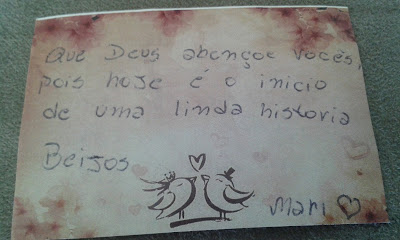 Que Deus abençoe vocês,
pois hoje é o inicio
de uma linda historia
Beijos
Mari